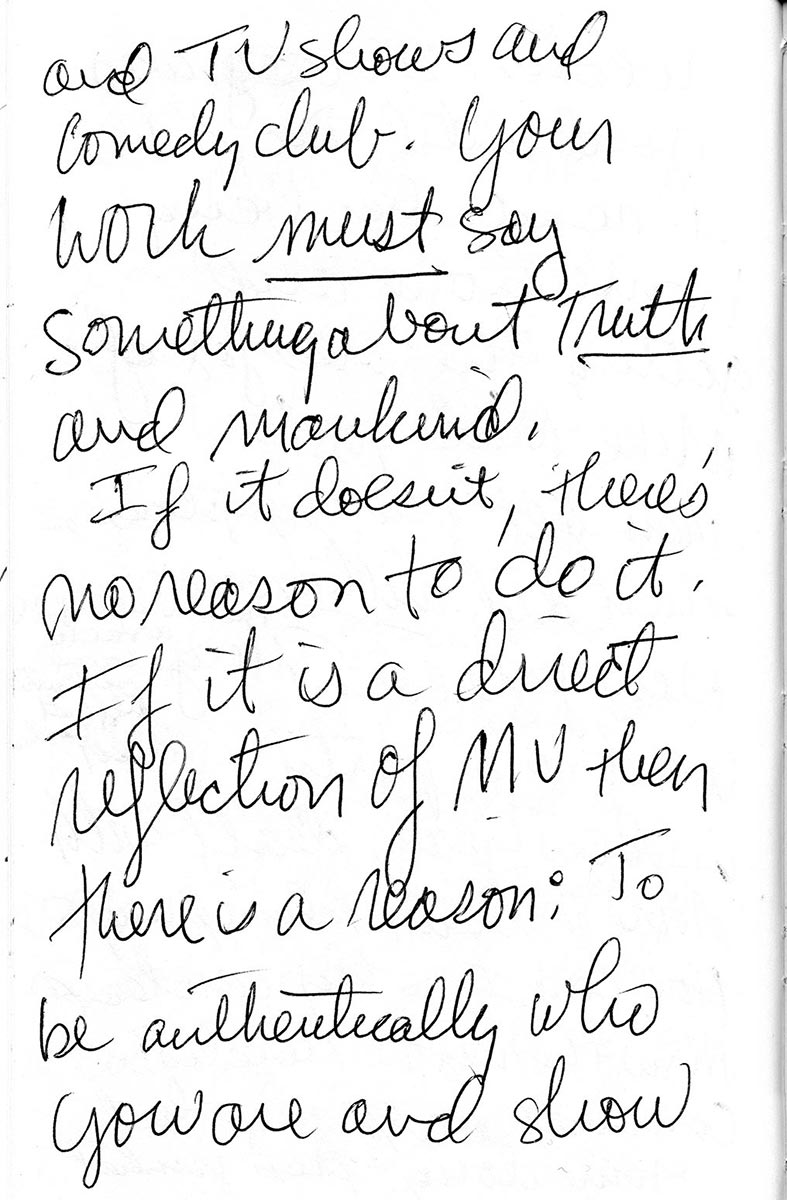 and TV shows and
Comedy club. Your
work must say
something about Truth
and mankind.
If it doesn't, there's
no reason to do it.
If it is a direct
reflection of MV then
there is a reason: To
be authentically who
you are and show